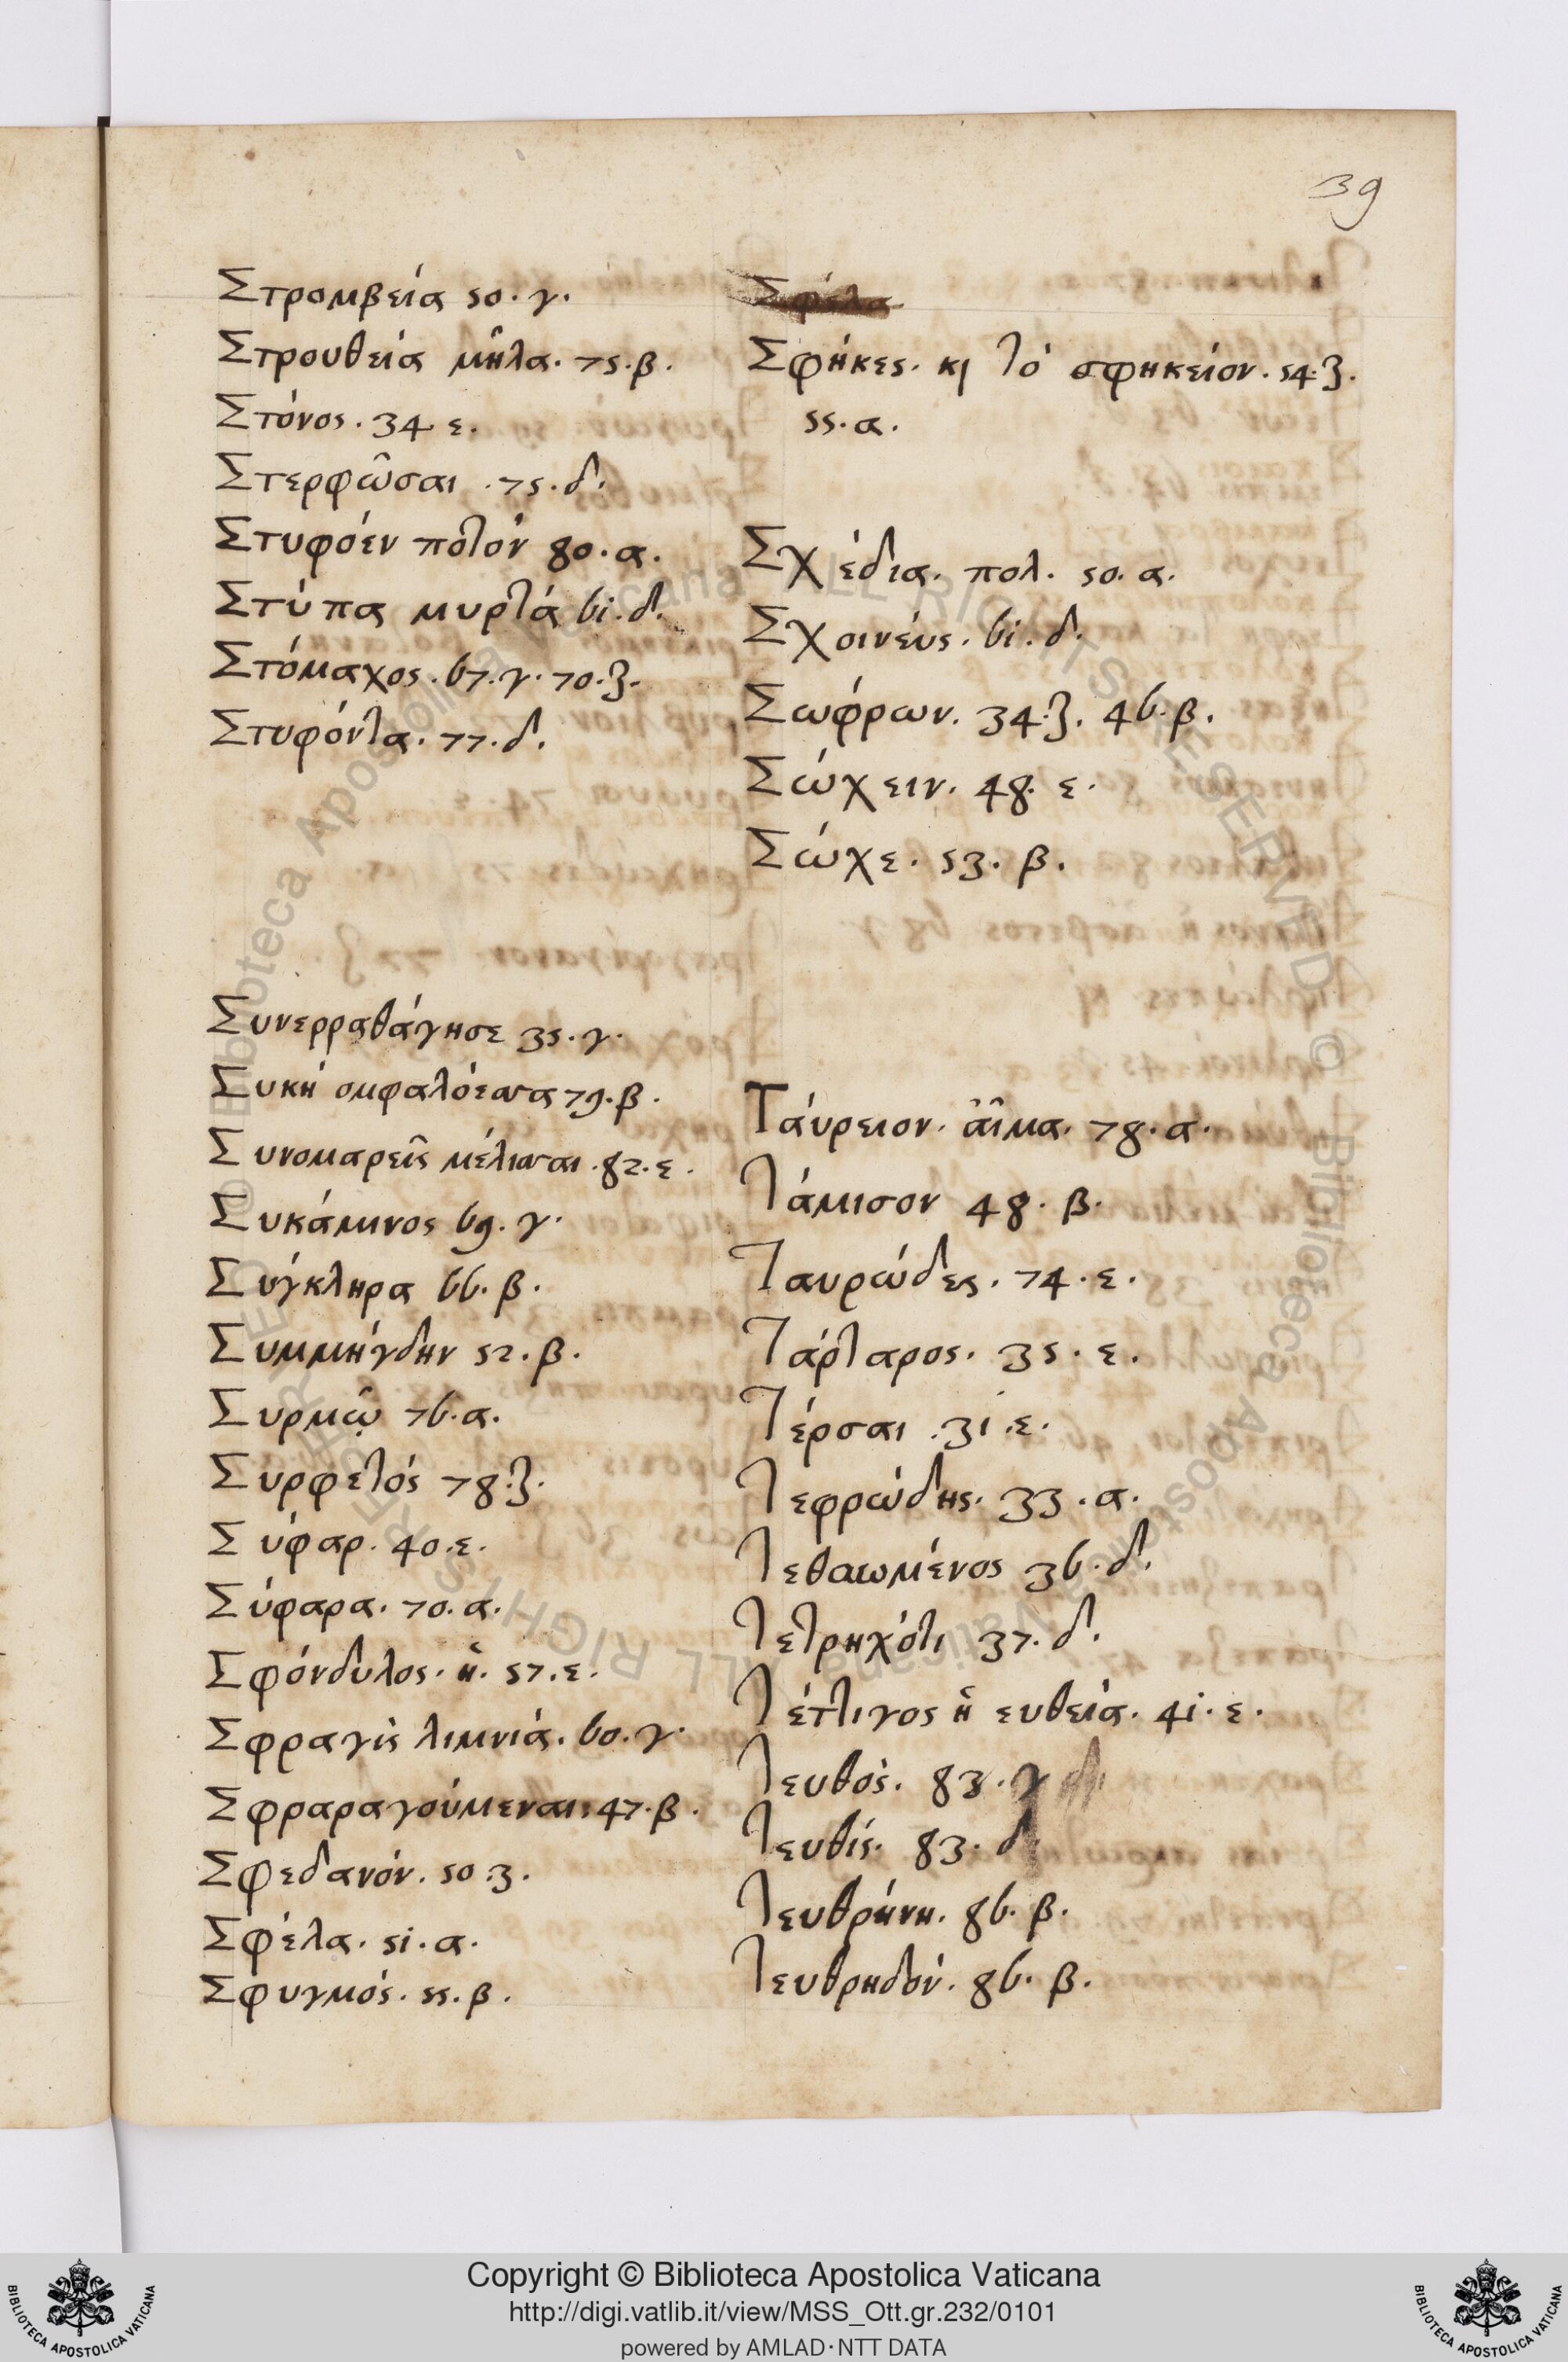 39
Στρομβεία 50. γ.
Στρουθεία μῆλα. 75. β.
Στόνος. 34 ε.
Στερφῶσαι. 75. δ.
Στυφόεν ποτόν 80. α.
Στύπα μυρτά 61. δ.
Στόμαχος. 67. γ. 70. ζ.
Στυφόντα. 77. δ.
Συνερραθάγησε 35. γ.
Συκή ομφαλόεσσα 79. β.
Συνομαρεῖς μέλισσαι. 82. ε.
Συκάμινος 69. γ.
Σύγκληρα 66. β.
Συμμήγδην 52. β.
Συρμῷ 76. α.
Συρφετός 78. ζ.
Σύφαρ. 40. ε.
Σύφαρα. 70. α.
Σφόνδυλος. ἡ. 57. ε.
Σφραγὶς λιμνιά. 60. γ.
Σφραραγούμεναι. 47. β.
Σφεδανόν. 50. ζ.
Σφέλα. 51. α.
Σφυγμός. 55. β.
Σφέλα
Σφήκες. κὶ τὸ σφηκείον. 54. ζ.
55. α.
Σχέδια. πολ. 50. α.
Σχοινέυς. 61. δ.
Σωφρων. 34. ζ. 46. β.
Σώχειν. 48. ε.
Σώχε. 53. β.
Τάυρειον. ἆῖμα. 78. α.
Τάμισον 48. β.
Ταυρώδες. 74. ε.
Τάρταρος. 35. ε.
Τέρσαι. 31. ε.
Τεφρώδης. 33. α.
Τετρηχότι 37. δ.
Τέττιγος ἡ ευθεία. 41. ε.
Τευθός. 83. γ
Τευθίς. 83. δ.
Τευθρήνη. 86. β.
Τευθρηδόν. 86. β.
Copyright © Biblioteca Apostolica Vaticana
http://digi.vatlib.it/view/MSS_Ott.gr.232/0101
powered by AMLAD·NTT DATA
BIBLIOTECA APOSTOLICA VATICANA
BIBLIOTECA APOSTOLICA VATICANA